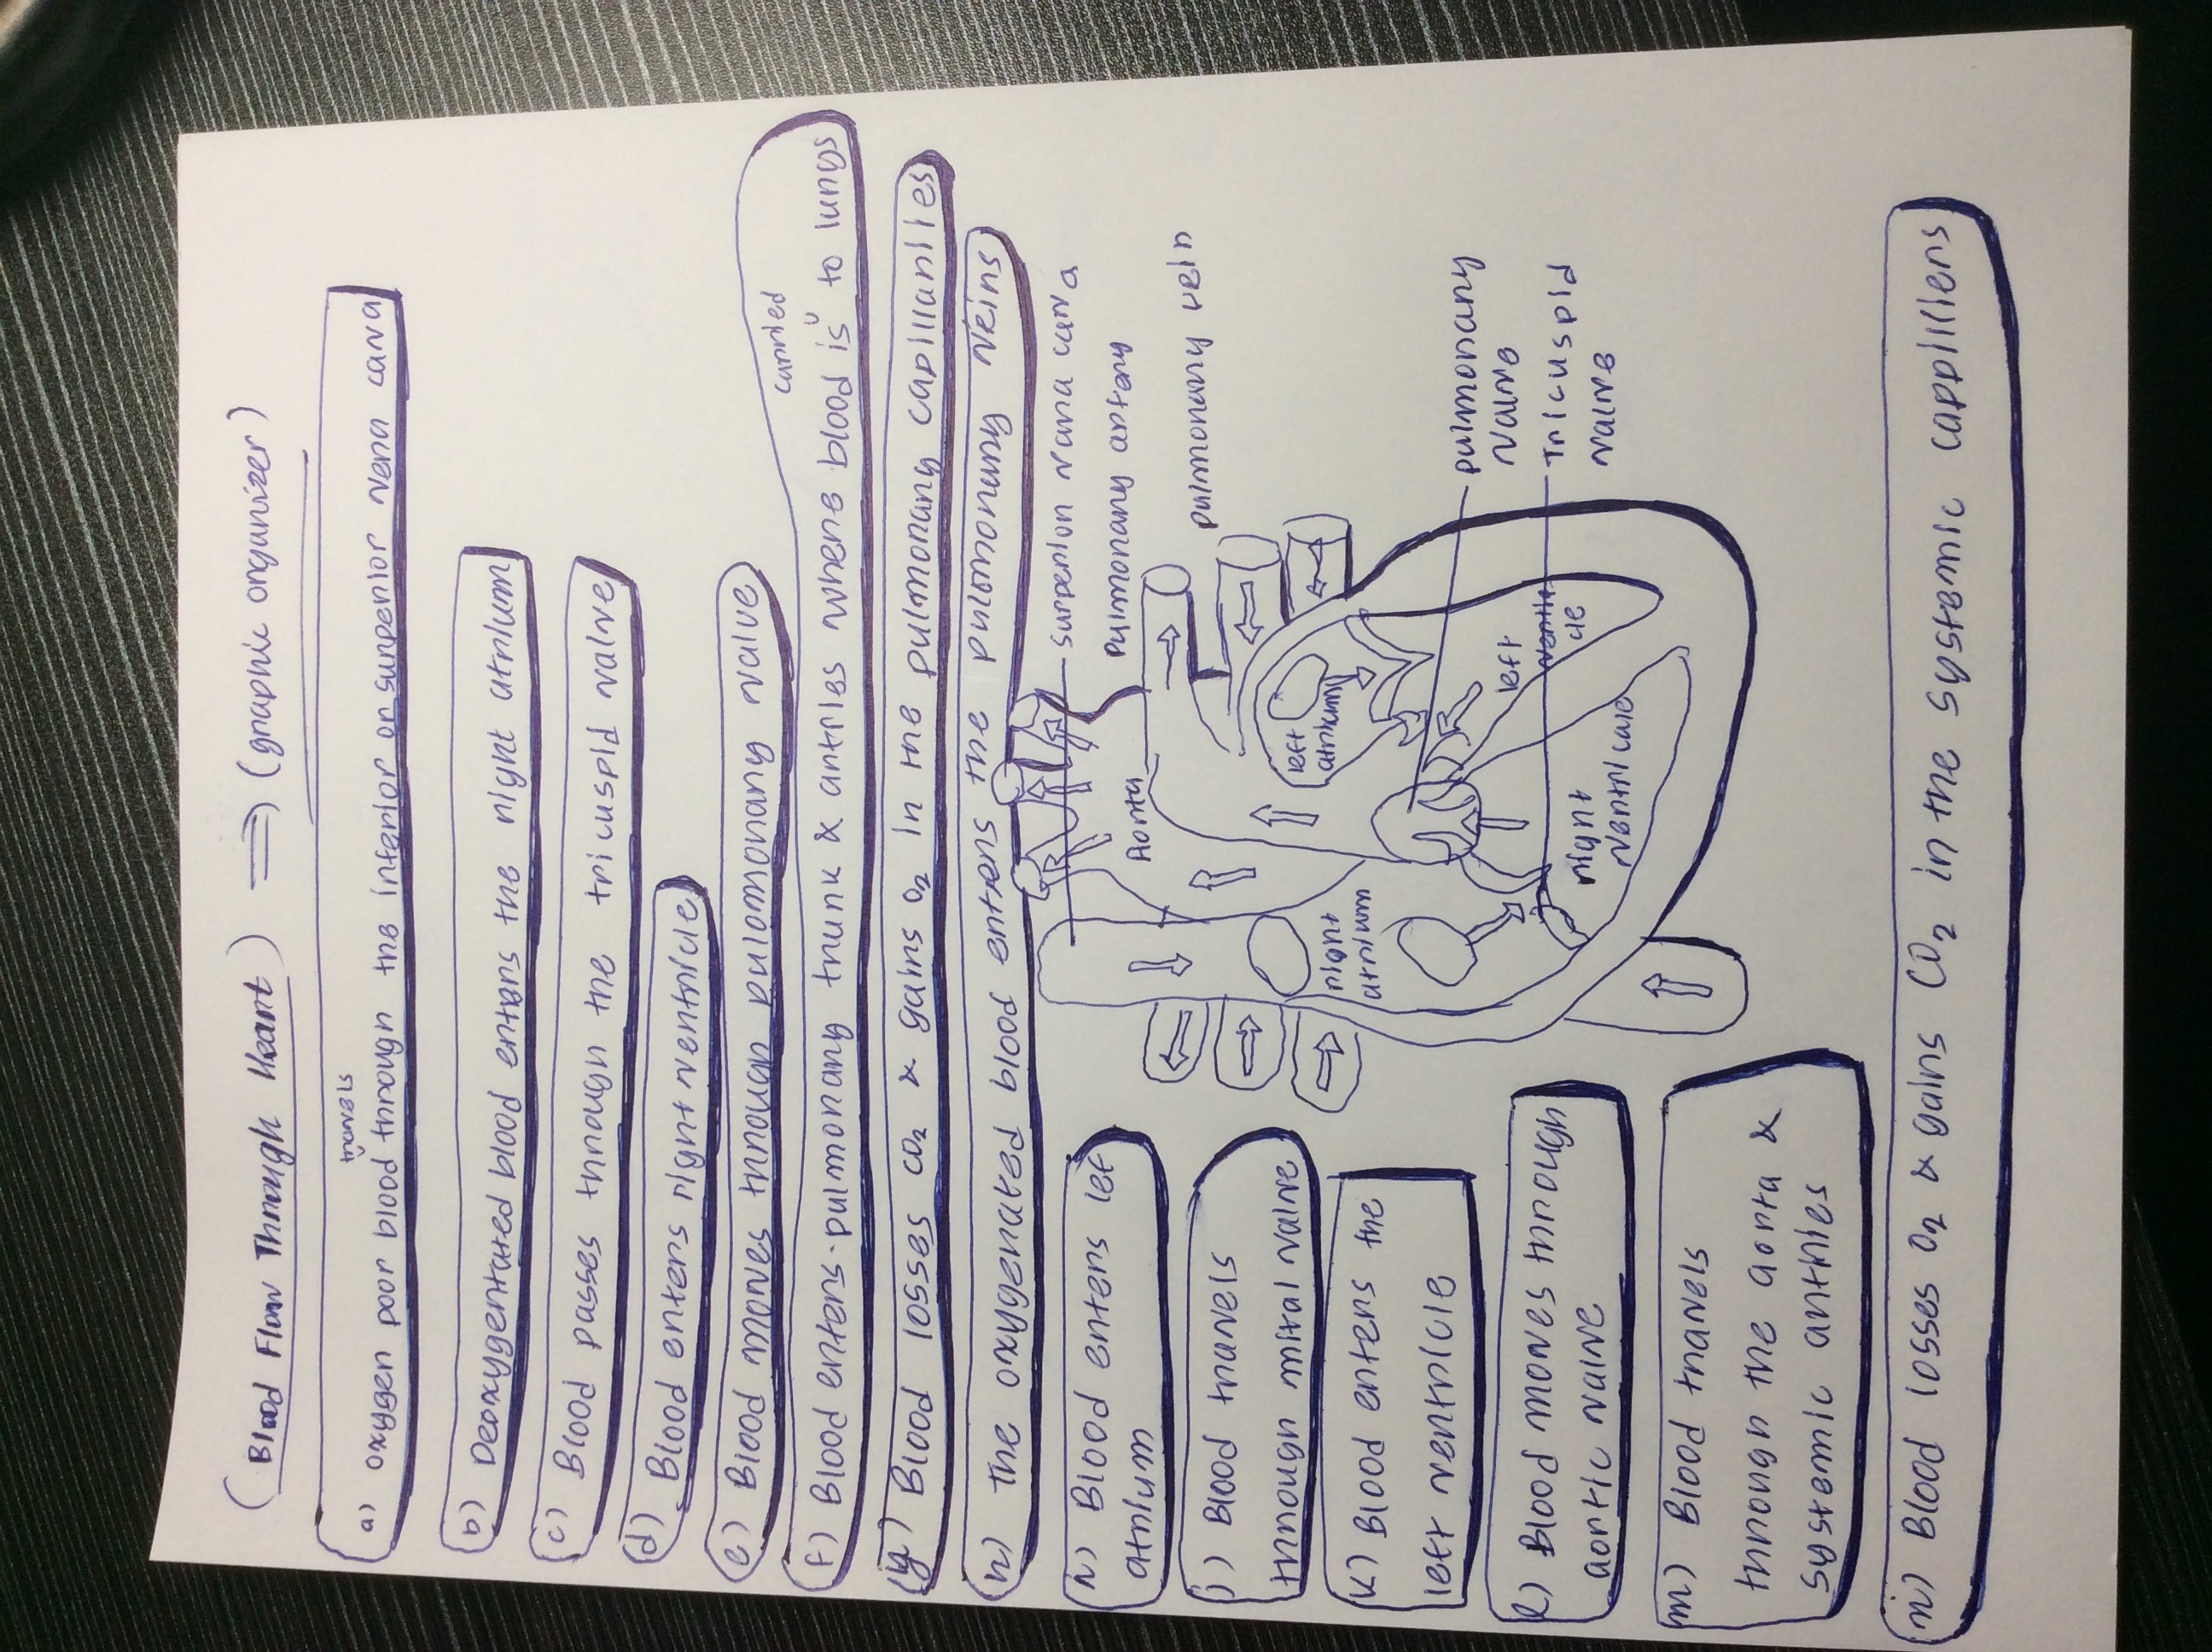 (Blood Flow Through Heart) ⇒ (graphic organizer)
a) oxygen poor blood travels through the inferior or superior vena cava
b) Deoxygentated blood enters the right atrium
c) Blood passes through the tricuspid valve
d) Blood enters right ventricle
e) Blood moves through pulomonary valve
f) Blood enters pulmonary trunk & artries where blood is carried to lungs
g) Blood losses CO2 & gains O2 in the pulmonary capillaries
h) the oxygenated blood enters the pulomonury veins
i) Blood enters lef
atrium
j) Blood travels
through mitral valve
k) Blood enters the
left ventricle
l) Blood moves through
aortic valve
m) Blood travels
through the aorta &
systemic artries
n) Blood losses O2 & gains CO2 in the systemic capplilers
surperior vana cava
pulmonary artery
pulmonary vein
Aorta
left
atrium
right
atrium
pulmonary
valve
Tricuspid
valve
left
right